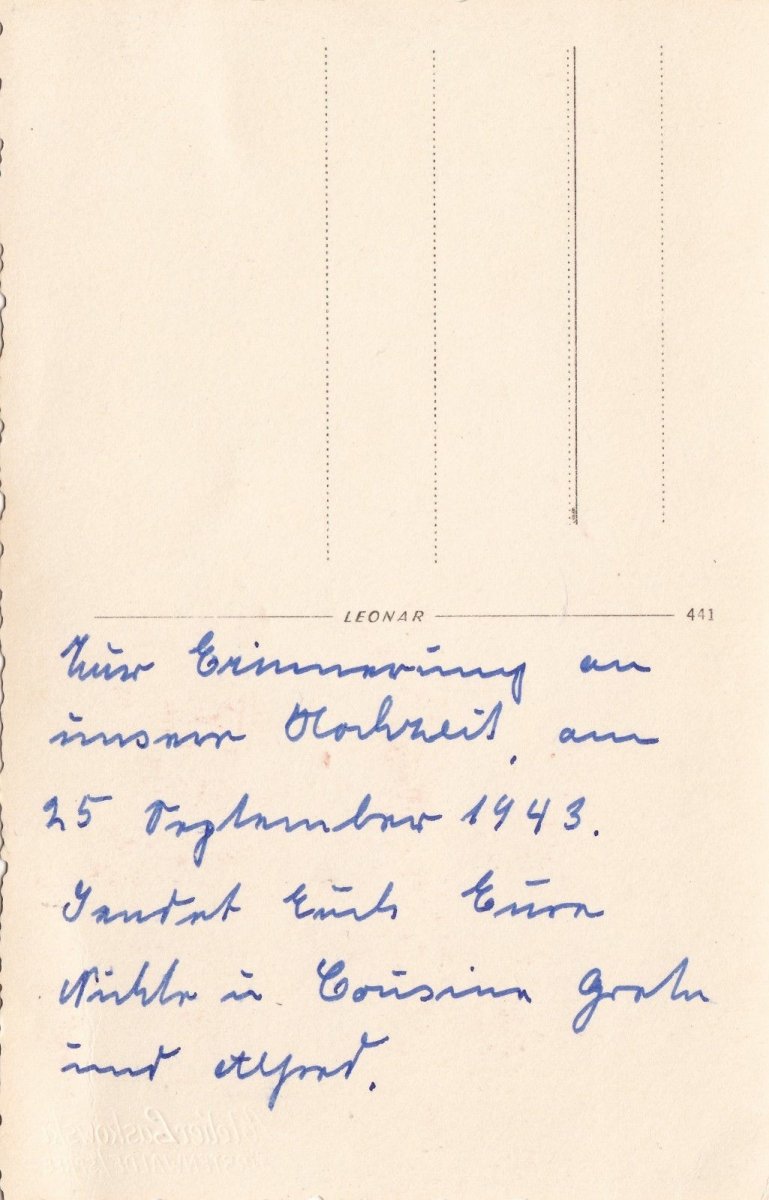 LEONAR 441
Zur Erinnerung an
unsere Hochzeit, am
25 September 1943.
Sendet Euch Eure
Nichte u Cousine Grete
und Alfred.
Atelier Baskowski